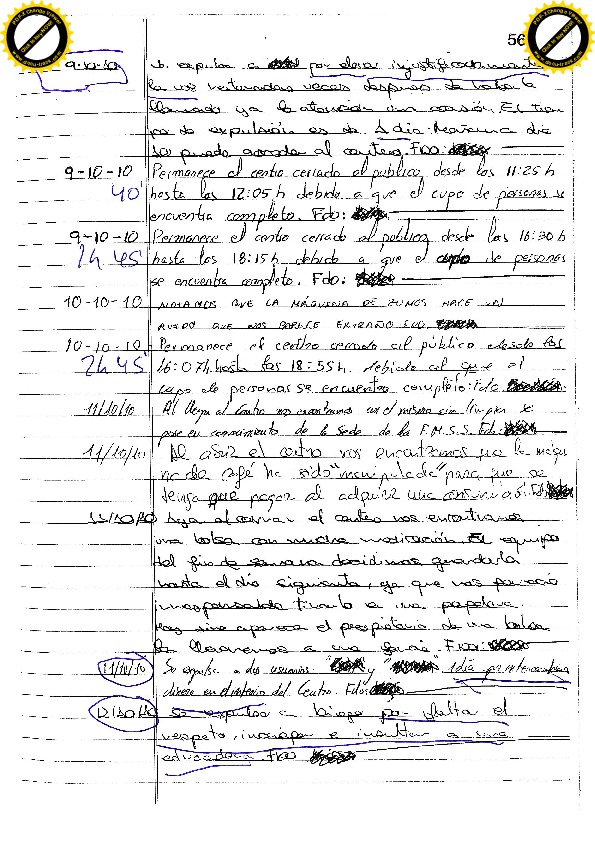 56
9-10-10 se expulsa a por elevar injustificadamente
la voz reiteradas veces despues de haberle
llamado ya la atención una ocasión. El tiem
po de expulsión es de 1 día. Mañana día
10 puede acceder al centro. Fdo:
9-10-10 Permanece el centro cerrado al público desde las 11:25h
40' hasta las 12:05h debido a que el cupo de personas se
encuentra completo. Fdo:
9-10-10 Permanece el centro cerrado al público desde las 16:30h
2h 45' hasta las 18:15h debido a que el cupo de personas
se encuentra completo. Fdo:
10-10-10 NOTAMOS QUE LA MÁQUINA DE ZUMOS HACE UN
RUIDO QUE NOS PARECE EXTRAÑO
10-10-10 Permanece el centro cerrado al público desde las
2h 45' 16:07h hasta las 18:55h, debido al que el
cupo de personas se encuentra completo. Fdo:
11/10/10 Al llegar al centro nos encontramos con el mismo sin limpiar se
pone en conocimiento de la Sede de la F.M.S.S. Fdo:
11/10/10 Al abrir el centro nos encontramos que la máqui
na de café ha sido "manipulada" para que se
tenga que pagar al adquirir una consumición. Fdo:
11/10/10 al cerrar el centro nos encontramos
una bolsa con mucha medicación. El equipo
del fin de semana decidimos guardarla
hasta el día siguiente, ya que nos pareció
irresponsable tirarla a una papelera.
la llevaremos a una Fdo:
11/10/10 Se expulsa a dos usuarios " " y " " 1 día por intercambiar
dinero en el interior del Centro. Fdo:
12/10/10 se expulsa a por falta el
respeto, increpar e insultar a una
educadora. Fdo